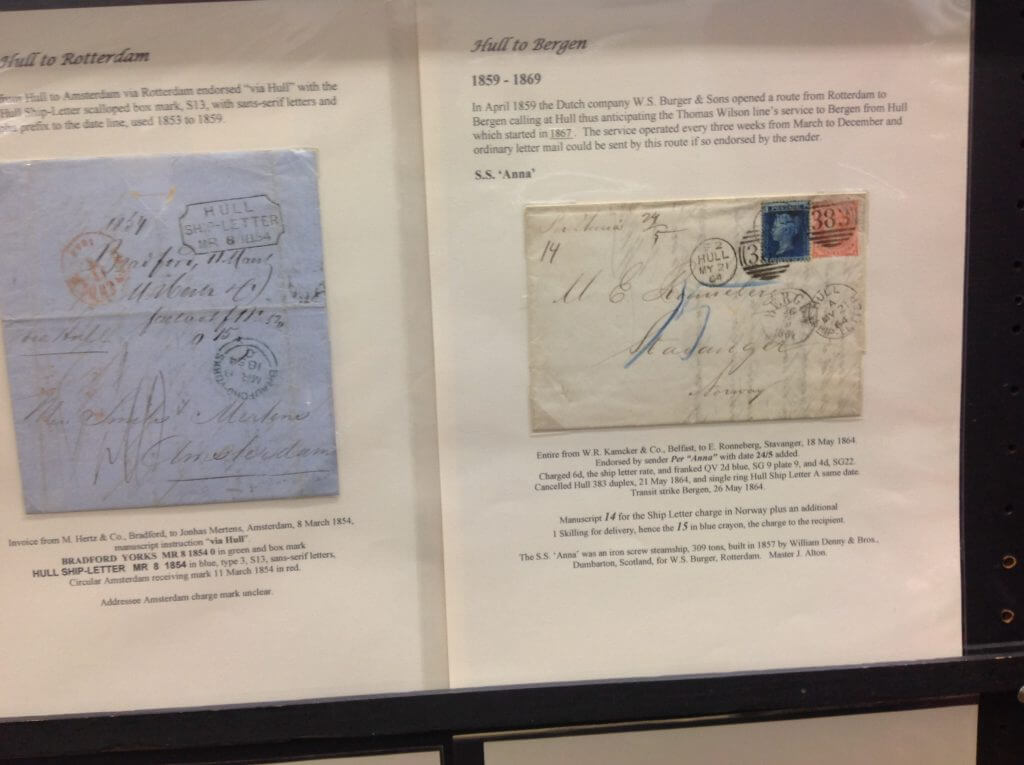 Hull to Rotterdam
from Hull to Amsterdam via Rotterdam endorsed "via Hull" with the
Hull Ship-Letter scalloped box mark, S13, with sans-serif letters and
prefix to the date line, used 1853 to 1859.
1854
HULL
SHIP-LETTER
MR 8 1854
via Hull
BRADFORD-YORKS
MR 8
1854
0
Mertens
Amsterdam
Invoice from M. Hertz & Co., Bradford, to Jonhas Mertens, Amsterdam, 8 March 1854,
manuscript instruction "via Hull".
BRADFORD YORKS MR 8 1854 0 in green and box mark
HULL SHIP-LETTER MR 8 1854 in blue, type 3, S13, sans-serif letters,
Circular Amsterdam receiving mark 11 March 1854 in red.
Addressee Amsterdam charge mark unclear.
Hull to Bergen
1859 - 1869
In April 1859 the Dutch company W.S. Burger & Sons opened a route from Rotterdam to
Bergen calling at Hull thus anticipating the Thomas Wilson line's service to Bergen from Hull
which started in 1867. The service operated every three weeks from March to December and
ordinary letter mail could be sent by this route if so endorsed by the sender.
S.S. 'Anna'
24/5
14
HULL
MY 21
64
383
E Ronneberg
BERGEN
HULL
A
MY 21
64
SHIP-LETTER
15
Stavanger
Norway
Entire from W.R. Kamcker & Co., Belfast, to E. Ronneberg, Stavanger, 18 May 1864.
Endorsed by sender Per "Anna" with date 24/5 added.
Charged 6d, the ship letter rate, and franked QV 2d blue, SG 9 plate 9, and 4d, SG22.
Cancelled Hull 383 duplex, 21 May 1864, and single ring Hull Ship Letter A same date.
Transit strike Bergen, 26 May 1864.
Manuscript 14 for the Ship Letter charge in Norway plus an additional
1 Skilling for delivery, hence the 15 in blue crayon, the charge to the recipient.
The S.S. 'Anna' was an iron screw steamship, 309 tons, built in 1857 by William Denny & Bros.,
Dumbarton, Scotland, for W.S. Burger, Rotterdam. Master J. Alton.